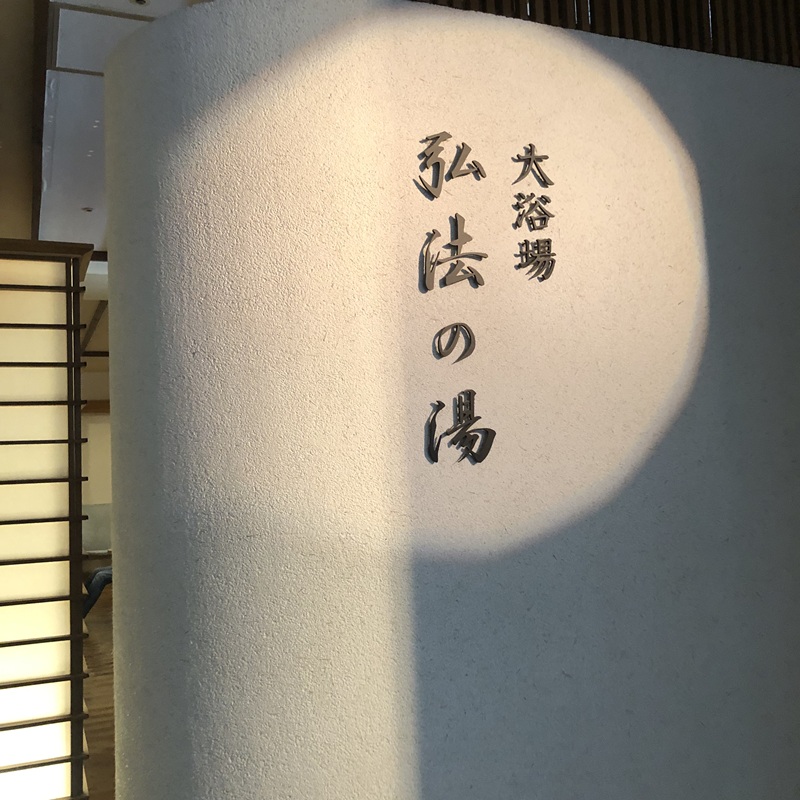 大浴場
弘法の湯